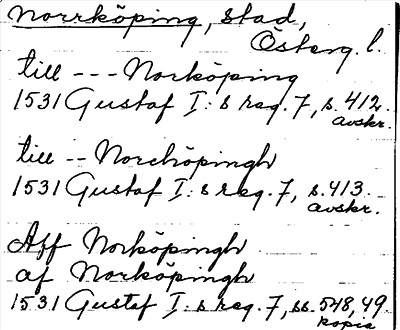 Norrköping, stad,
Österg. l.
till --- Norköping
1531 Gustaf I:s reg. 7, s. 412.
avskr.
till -- Norchöpingh
1531 Gustaf I:s reg. 7, s. 413.
avskr.
Aff Norköpingh
af Norköpingh
1531 Gustaf I:s reg. 7, ss. 548, 49
kopia